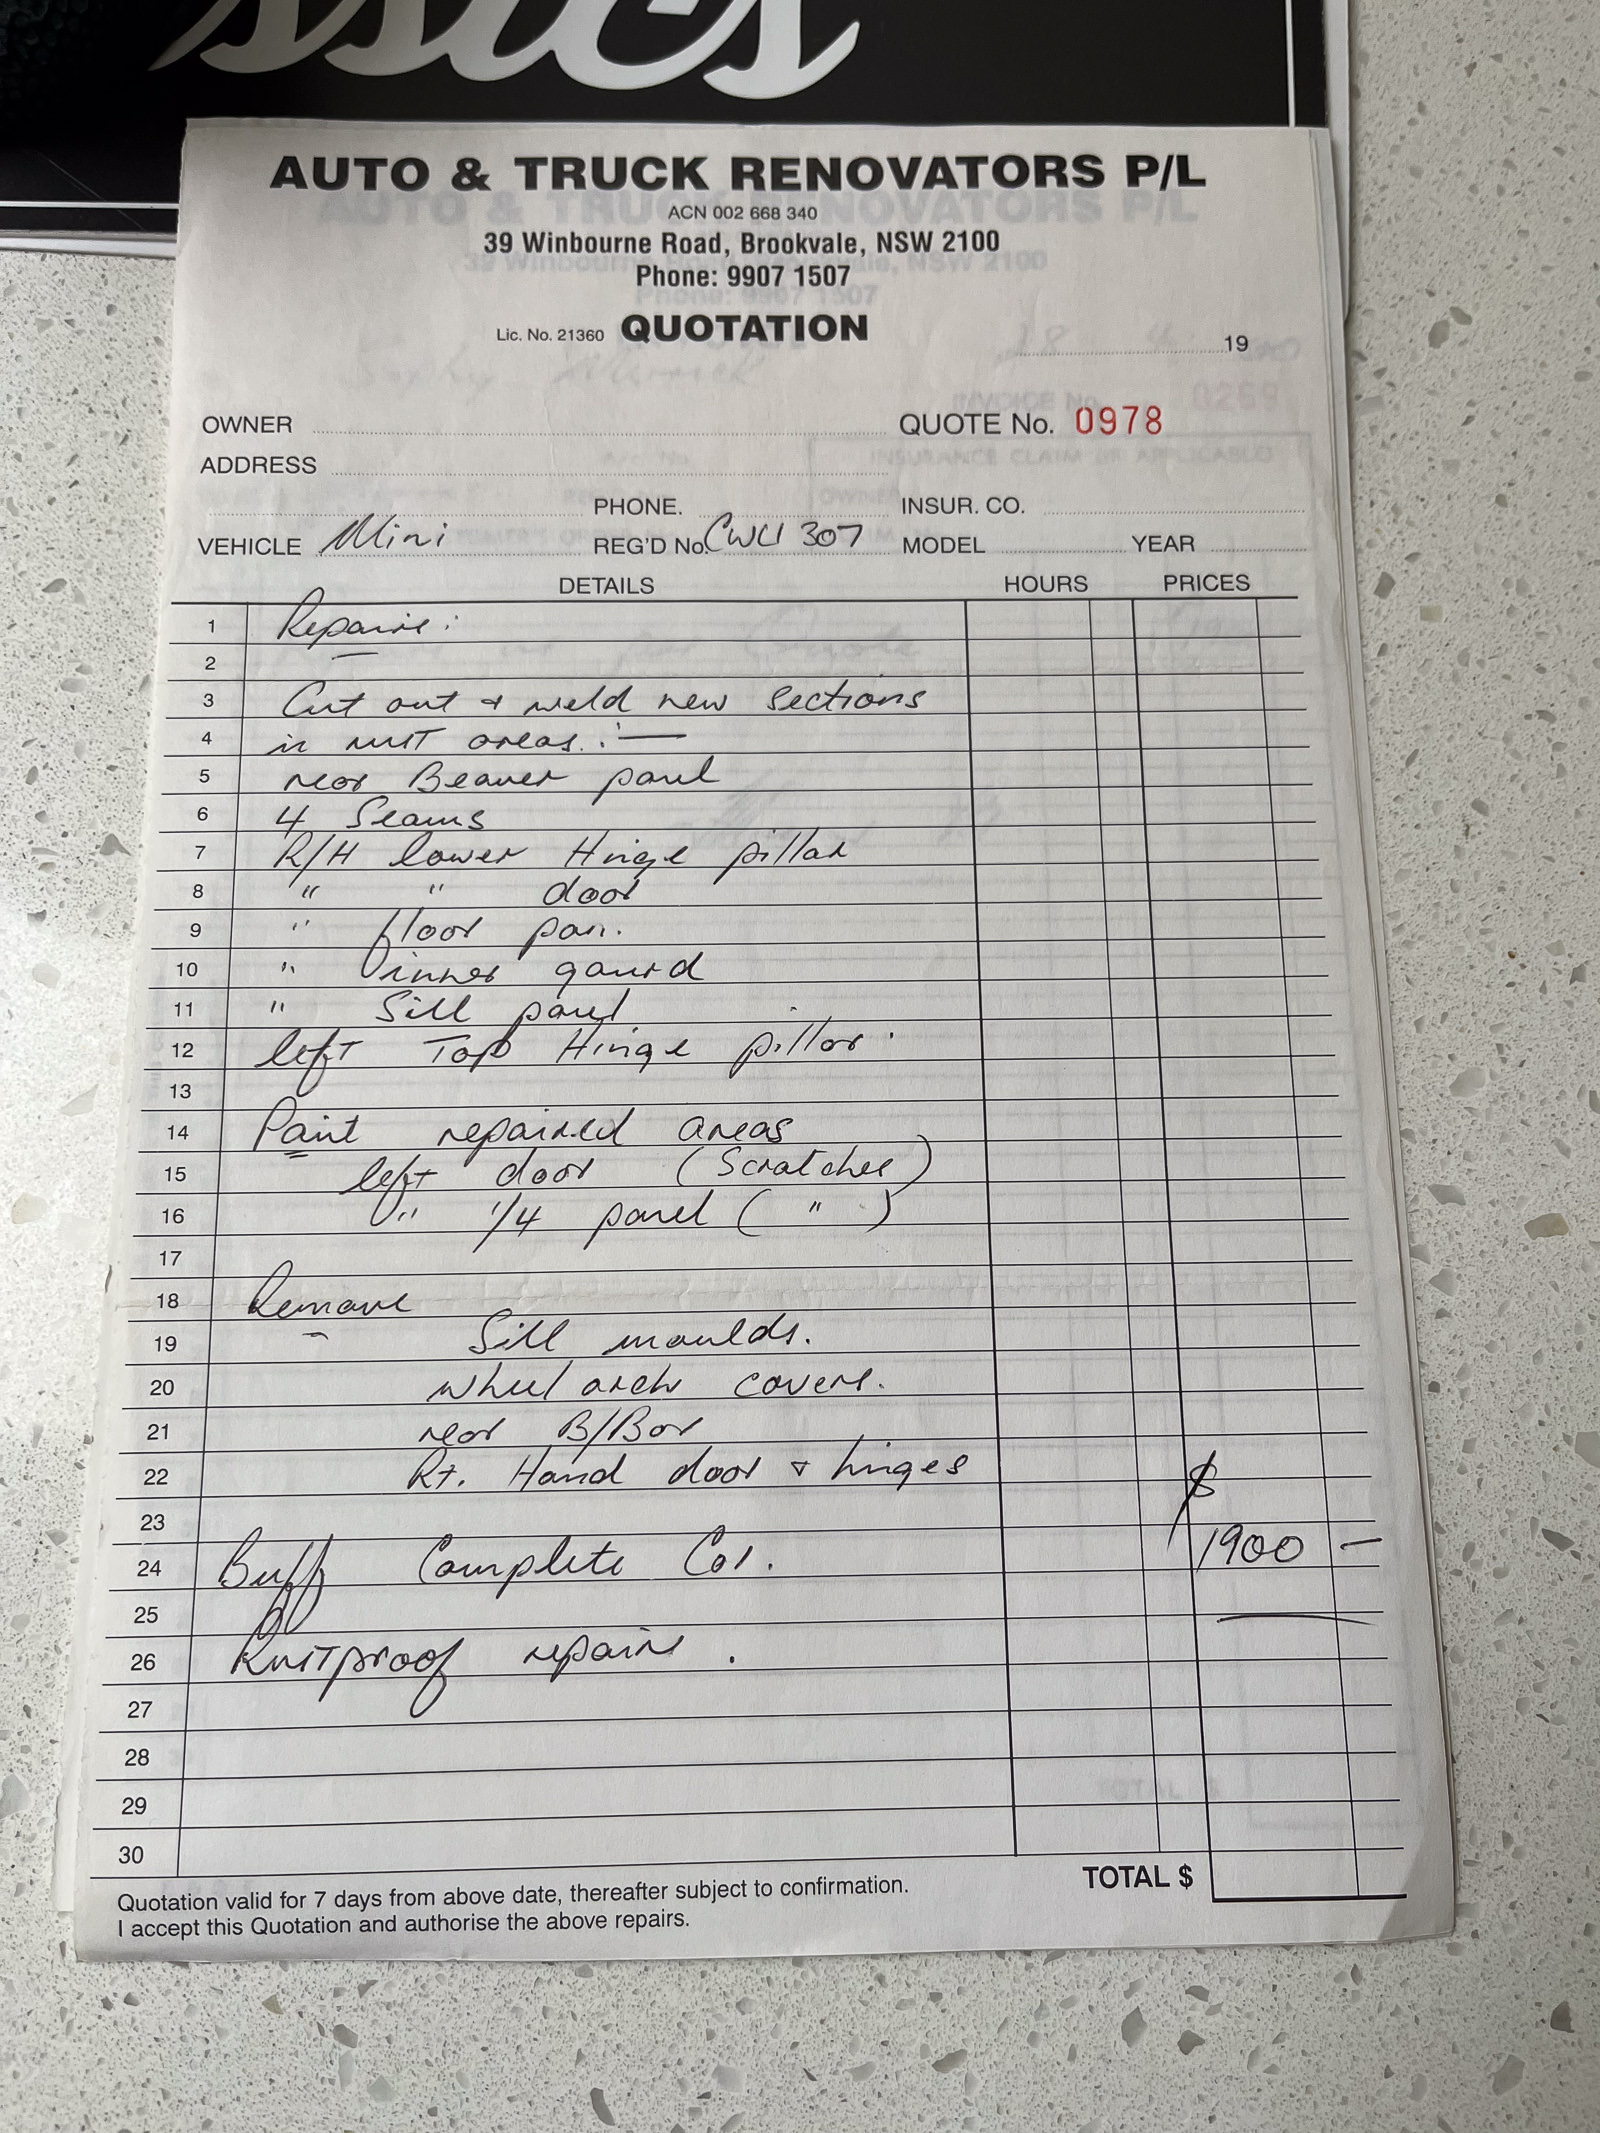 AUTO & TRUCK RENOVATORS P/L
ACN 002 668 340
39 Winbourne Road, Brookvale, NSW 2100
Phone: 9907 1507
Lic. No. 21360 QUOTATION
19
OWNER QUOTE No. 0978
ADDRESS
PHONE. INSUR. CO.
VEHICLE Mini REG'D No. CWU 307 MODEL YEAR
DETAILS HOURS PRICES
1 Repairs:
2
3 Cut out & weld new sections
4 in rust areas. :—
5 rear Beaver panel
6 4 Seams
7 R/H lower Hinge pillar
8 " " door
9 " floor pan.
10 " inner gaurd
11 " Sill panel
12 left Top Hinge pillar.
13
14 Paint repaired areas
15 left door (Scratches)
16 " 1/4 panel ( " )
17
18 Remove
19 Sill moulds.
20 wheel arch covers.
21 rear B/Bar
22 Rt. Hand door & hinges $
23
24 Buff Complete Car. 1900 —
25
26 Rustproof repairs.
27
28
29
30
TOTAL $
Quotation valid for 7 days from above date, thereafter subject to confirmation.
I accept this Quotation and authorise the above repairs.